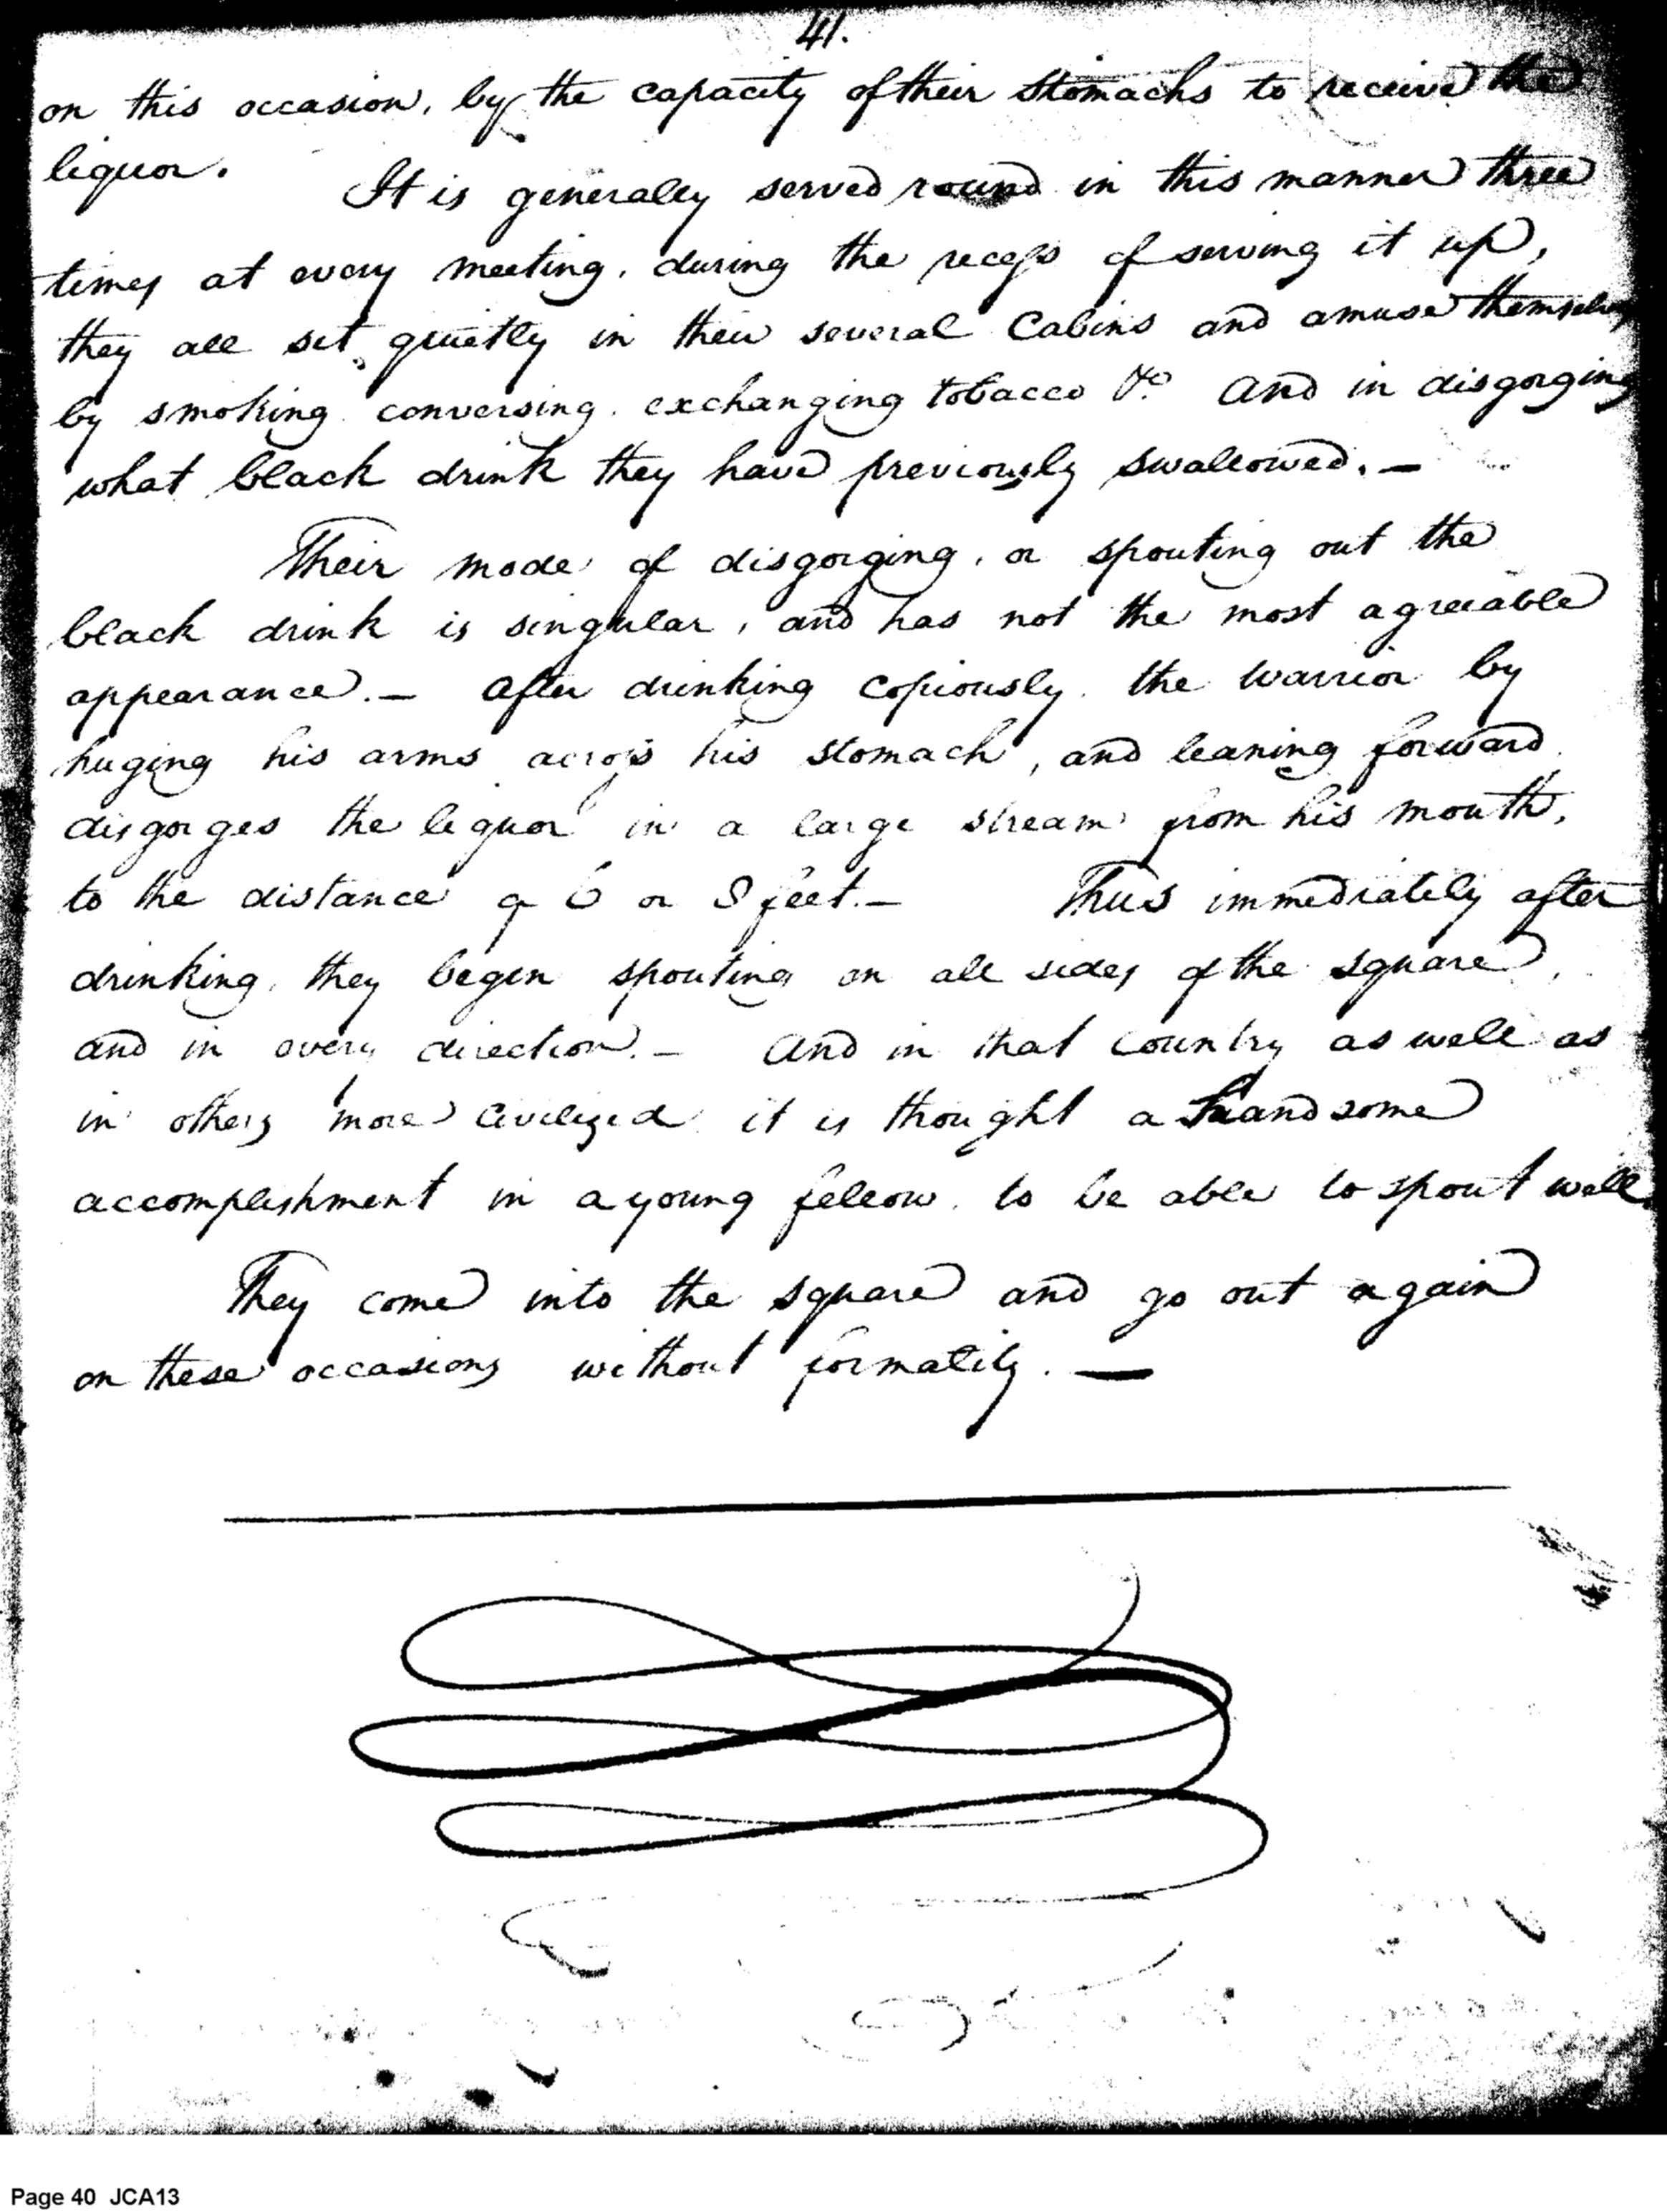 41.
on this occasion, by the capacity of their stomachs to receive the
liquor. It is generally served round in this manner three
times at every meeting. during the recess of serving it up,
they all set quietly in their several Cabins and amuse themselves
by smoking. conversing. exchanging tobacco &c. And in disgorging
what black drink they have previously swallowed. —
Their mode of disgorging, or spouting out the
black drink is singular, and has not the most agreeable
appearance. — After drinking copiously. the warrior by
huging his arms across his stomach, and leaning forward,
disgorges the liquor in a large stream from his mouth,
to the distance of 6 or 8 feet. — Thus immediately after
drinking, they begin spouting on all sides of the square,
and in every direction. — And in that country as well as
in others more civilized it is thought a handsome
accomplishment in a young fellow. to be able to spout well.
They come into the square and go out again
on these occasions without formality. —
Page 40 JCA13